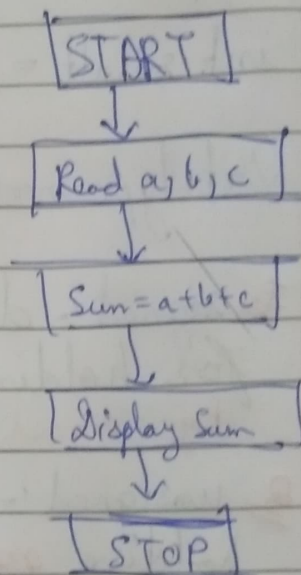 START
Read a, b, c
Sum = a+b+c
Display Sum
STOP